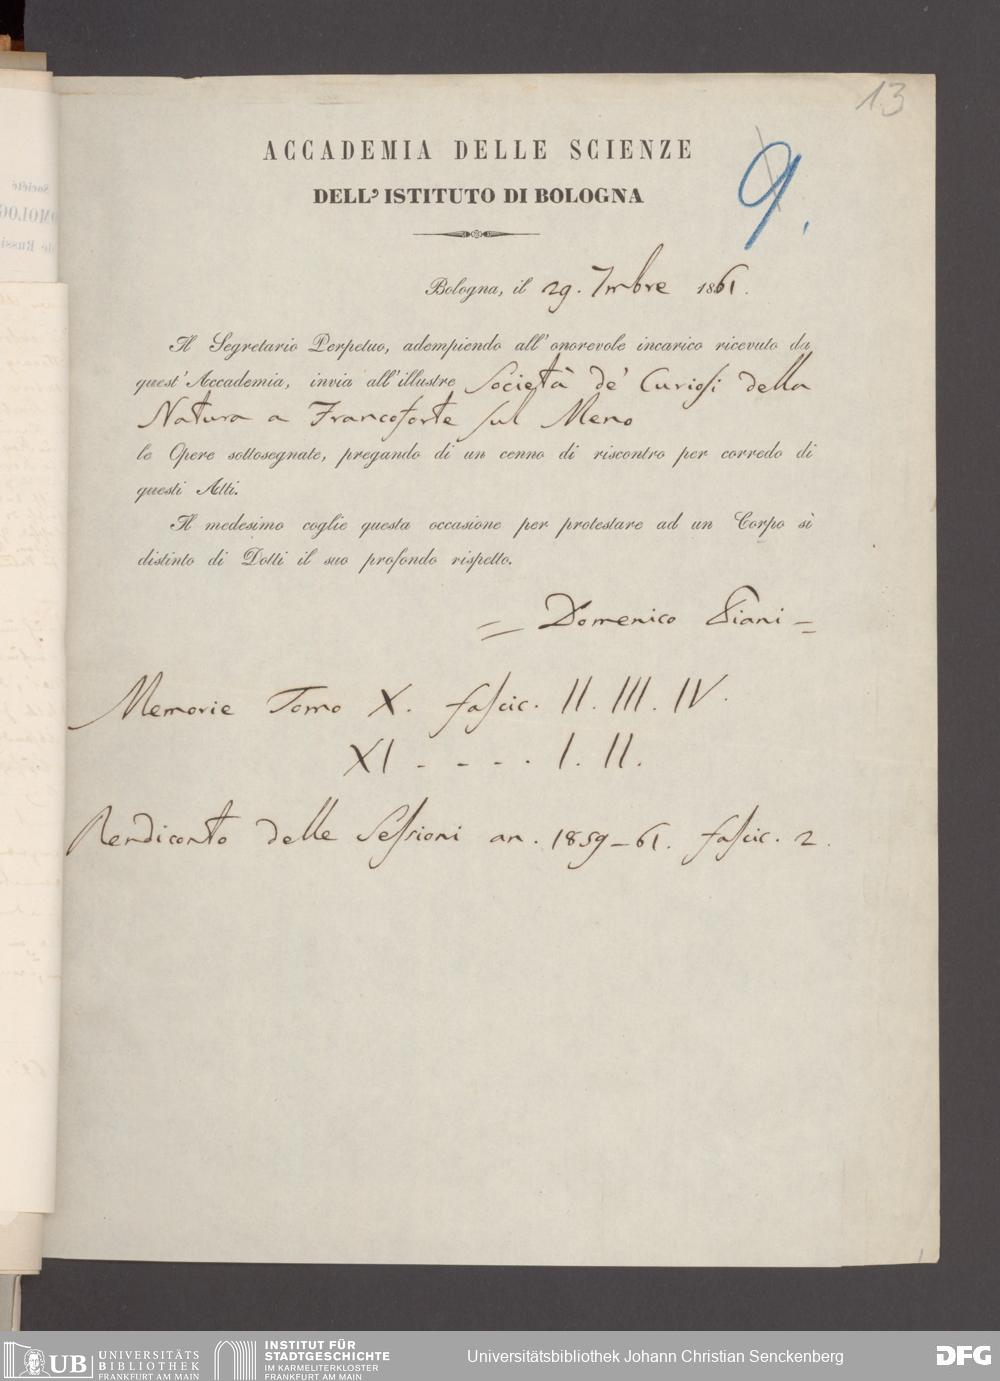 13
ACCADEMIA DELLE SCIENZE
DELL' ISTITUTO DI BOLOGNA
9.
Bologna, il 29. 7mbre 1861.
Il Segretario Perpetuo, adempiendo all' onorevole incarico ricevuto da
quest' Accademia, invia all' illustre Società de' Curiosi della
Natura a Francoforte sul Meno
le Opere sottosegnate, pregando di un cenno di riscontro per corredo di
questi Atti.
Il medesimo coglie questa occasione per protestare ad un Corpo sì
distinto di Dotti il suo profondo rispetto.
= Domenico Piani =
Memorie Tomo X. fascic. II. III. IV.
XI - - - . I. II.
Rendiconto delle Sessioni an. 1859-61. fascic. 2.
UB UNIVERSITÄTS
BIBLIOTHEK
FRANKFURT AM MAIN
INSTITUT FÜR
STADTGESCHICHTE
IM KARMELITERKLOSTER
FRANKFURT AM MAIN
Universitätsbibliothek Johann Christian Senckenberg
DFG